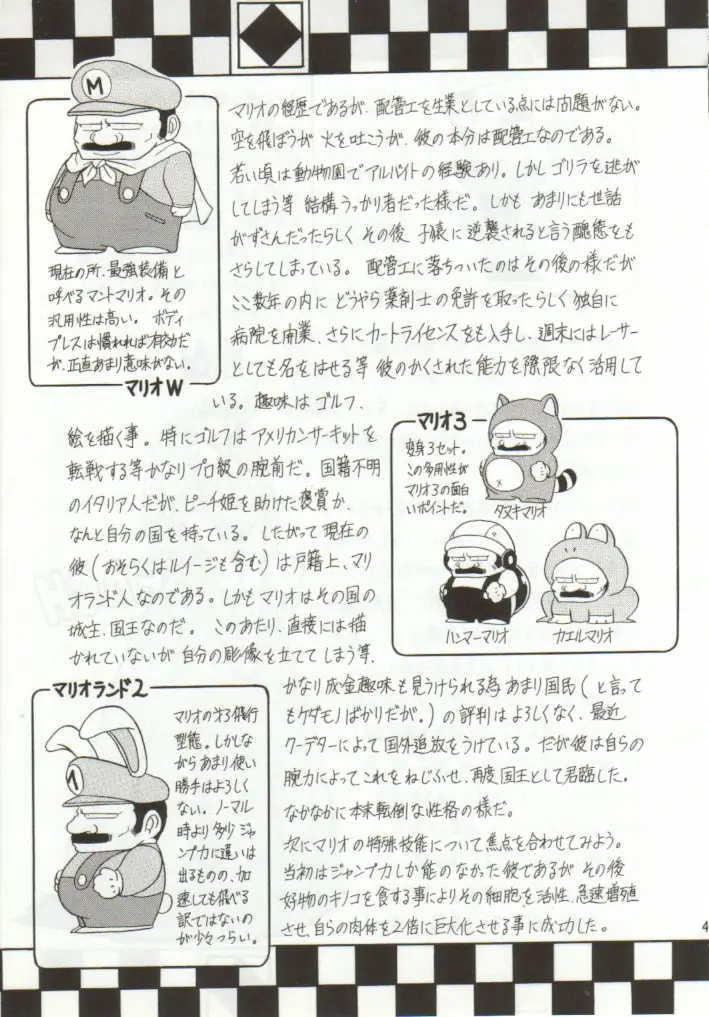 マリオの経歴であるが、配管工を生業としている点には問題がない。
空を飛ぼうが火を吐こうが、彼の本分は配管工なのである。
若い頃は動物園でアルバイトの経験あり。しかしゴリラを逃が
してしまう等 結構うっかり者だった様だ。しかも あまりにも世話
がずさんだったらしく その後 子猿に逆襲されると言う醜態をも
さらしてしまっている。 配管工に落ちついたのはその後の様だが
ここ数年の内に どうやら薬剤士の免許を取ったらしく 独自に
病院を開業、さらにカートライセンスをも入手し、週末にはレーサー
としても名をはせる等 彼のかくされた能力を際限なく活用して
いる。趣味はゴルフ、
M
現在の所、最強装備と
呼べるマントマリオ。その
汎用性は高い。 ボディ
プレスは慣れれば有効だ
が、正直あまり意味がない。
マリオW
絵を描く事。特にゴルフはアメリカンサーキットを
転戦する等かなりプロ級の腕前だ。国籍不明
のイタリア人だが、ピーチ姫を助けた褒賞か、
なんと自分の国を持っている。したがって現在の
彼(おそらくはルイージも含む)は戸籍上、マリ
オランド人なのである。しかもマリオはその国の
城主、国王なのだ。 このあたり、直接には描
かれていないが 自分の彫像を立ててしまう等、
マリオ3
変身3セット。
この多用性が
マリオ3の面白
いポイントだ。
タヌキマリオ
ハンマーマリオ
カエルマリオ
マリオランド2
マリオの第3飛行
型態。しかしな
がらあまり使い
勝手はよろしく
ない。ノーマル
時より多少ジャ
ンプ力に違いは
出るものの、加
速しても飛べる
訳ではないの
が少々つらい。
かなり成金趣味も見うけられる為あまり国民(と言って
もケダモノばかりだが。)の評判はよろしくなく、最近
クーデターによって国外追放をうけている。だが彼は自らの
腕力によってこれをねじふせ、再度国王として君臨した。
なかなかに本末転倒な性格の様だ。
次にマリオの特殊技能について焦点を合わせてみよう。
当初はジャンプ力しか能のなかった彼であるが その後
好物のキノコを食する事によりその細胞を活性、急速増殖
させ、自らの肉体を2倍に巨大化させる事に成功した。
4